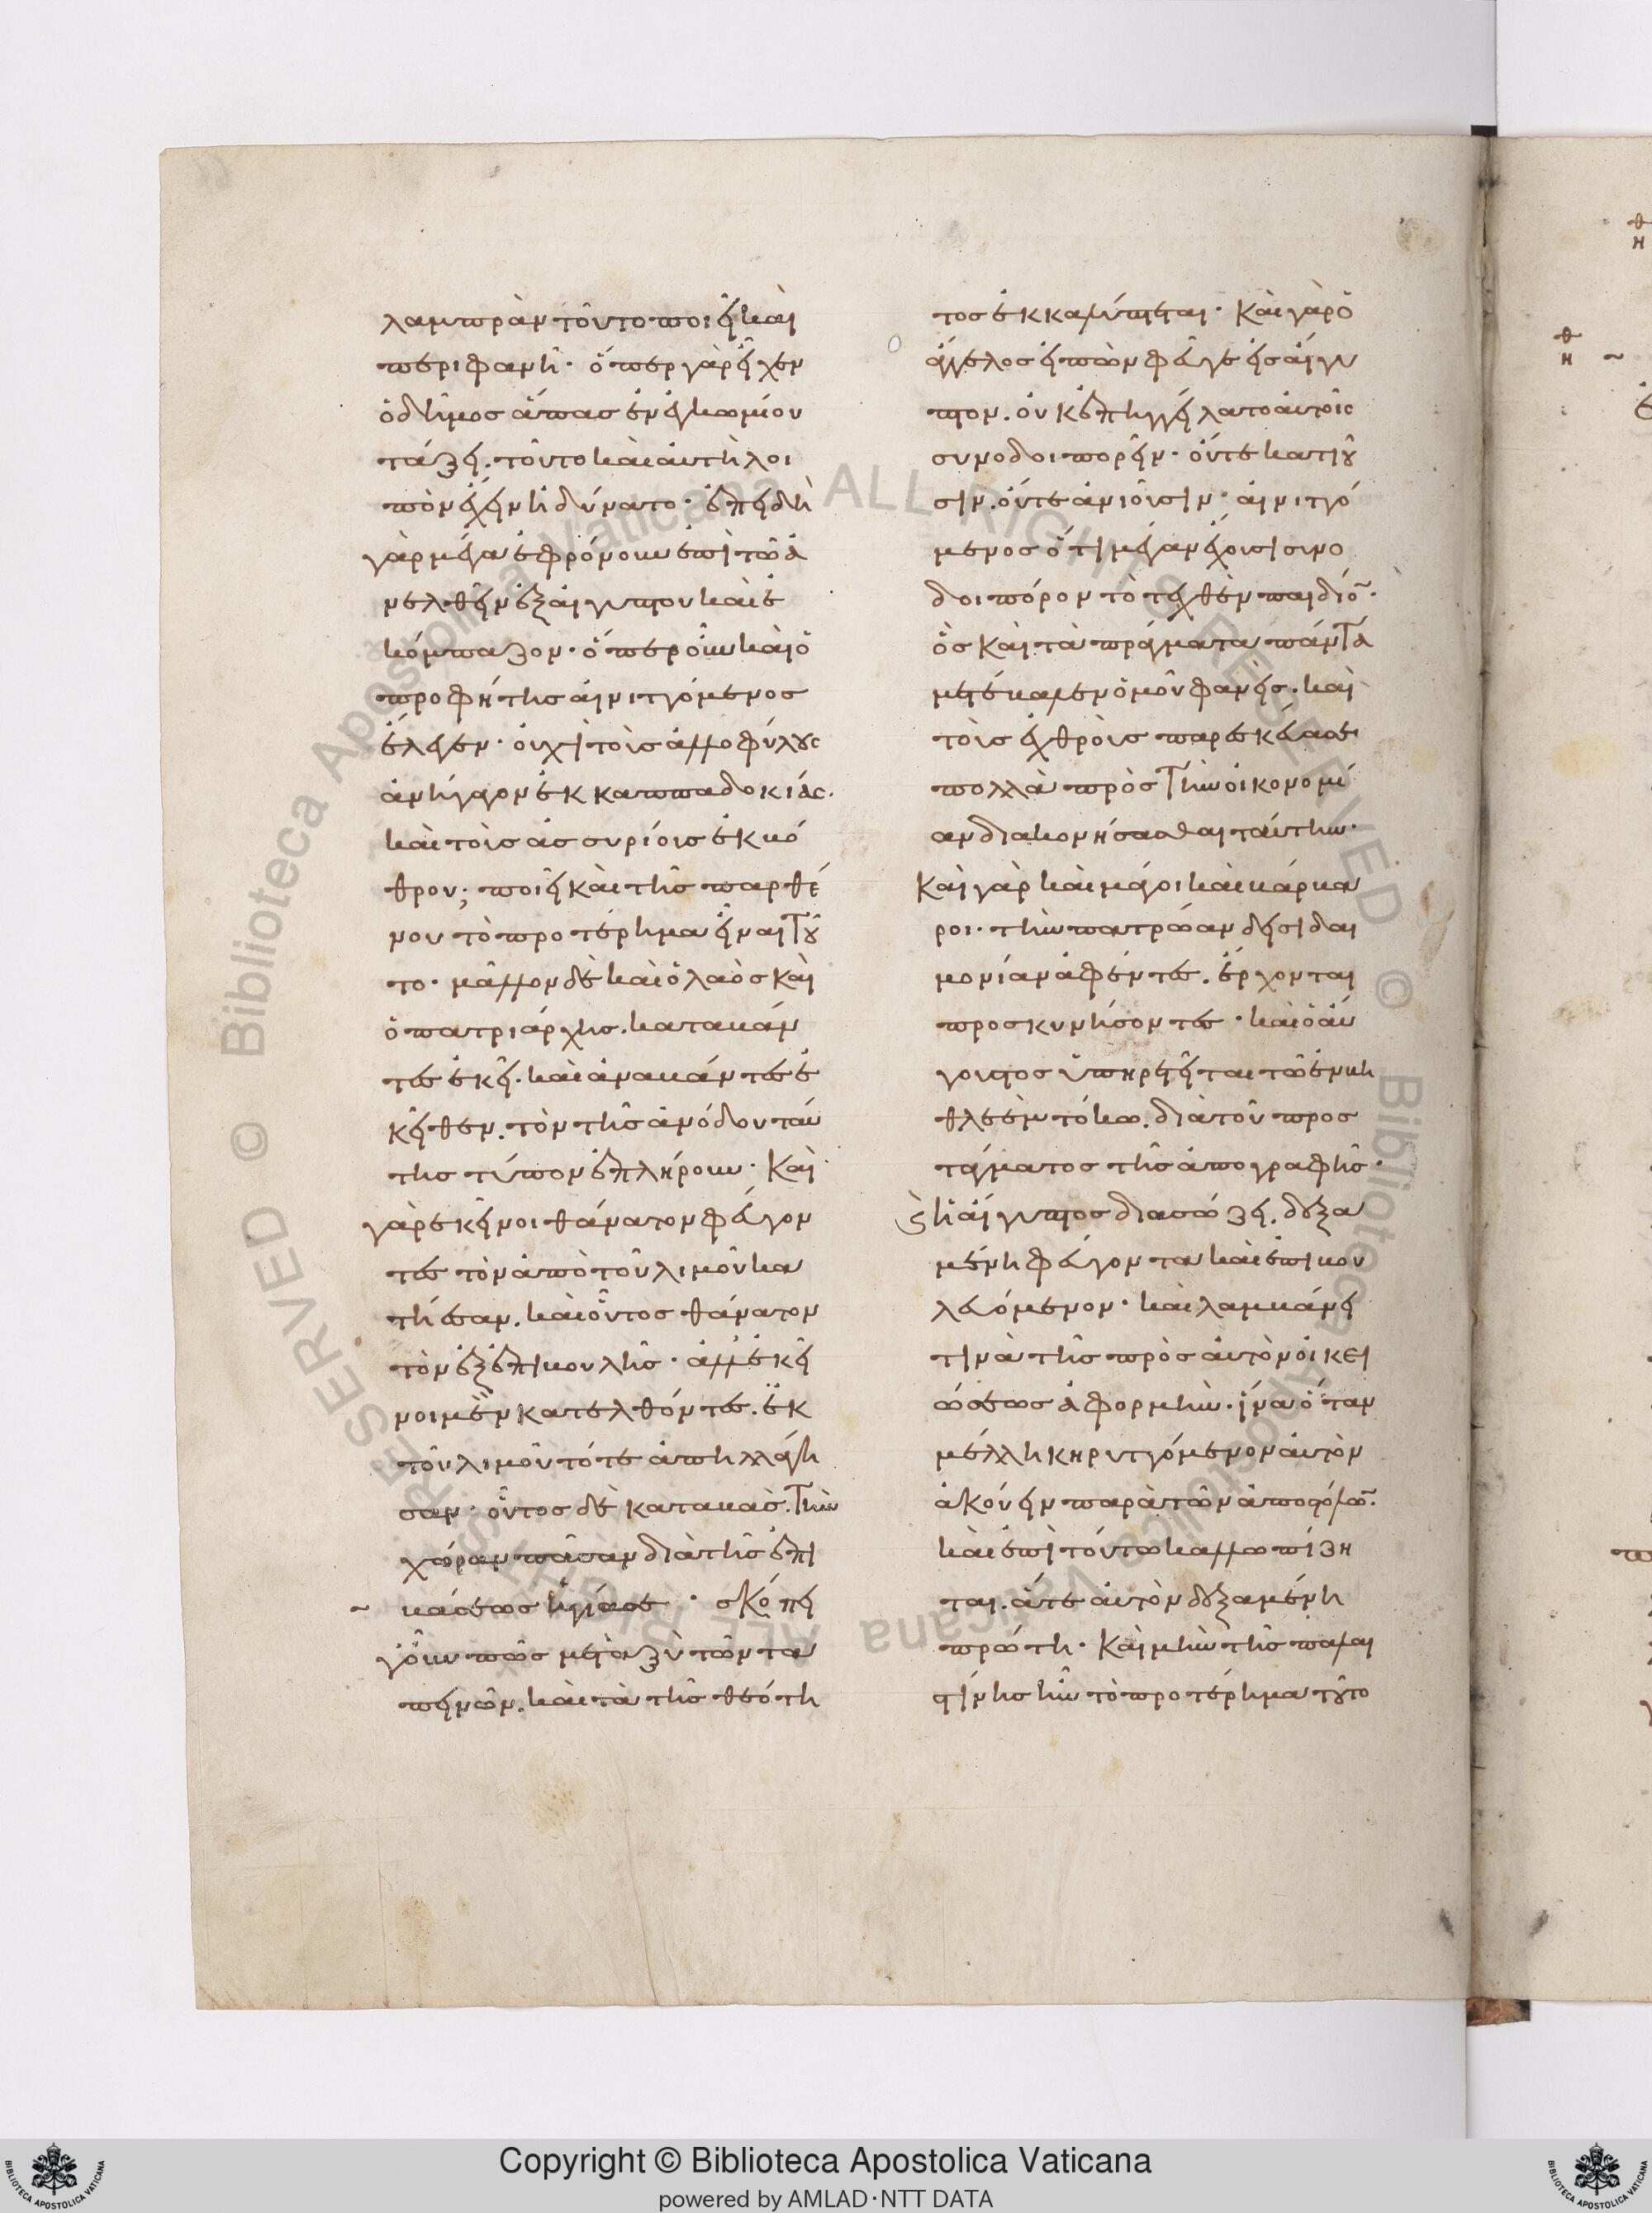 λαμπρὰν τοῦτο ποιεῖ καὶ
περιφανῆ· ὅπερ γὰρ εἶχεν
ὁ δῆμος ἅπας ἐνεκωμίου
τάζει. τοῦτο καὶ αὐτὴ λοι
πὸν ἔχειν ἠδύνατο· ἐπειδὴ
γὰρ μέγα ἐφρόνουν ἐπὶ τῶ ἀ
νελθεῖν ἐξ αἰγύπτου καὶ ἐ
κόμπαζον· ὅπερ οὖν καὶ ὁ
προφήτης αἰνιττόμενος
ἔλεγεν· οὐχὶ τοὺς ἀλλοφύλους
ἀνήγαγον ἐκ καππαδοκίας.
καὶ τοὺς ἀσσυρίους ἐκ κό
θρου; ποιεῖ καὶ τῆς παρθέ
νου τὸ προτέρημα εἶναι τοῦ
το· μᾶλλον δὲ καὶ ὁ λαὸς καὶ
ὁ πατριάρχης. καταβάν
τες ἐκεῖ. καὶ ἀναβάντες ἐ
κεῖθεν. τὸν τῆς ἀνόδου ταύ
της τύπον ἐπλήρουν· Καὶ
γὰρ ἐκεῖνοι θάνατον φεύγον
τες τὸν ἀπὸ τοῦ λιμοῦ κα
τήεσαν. καὶ οὗτος θάνατον
τὸν ἐξ ἐπιβουλῆς· ἀλλ' ἐκεῖ
νοι μὲν κατελθόντες. ἐκ
τοῦ λιμοῦ τότε ἀπηλλάγη
σαν· οὗτος δὲ καταβὰς. τὴν
χώραν πᾶσαν διὰ τῆς ἐπι
βάσεως ἡγίασε· σκόπει
γοῦν πῶς μεταξὺ τῶν τα
πεινῶν. καὶ τὰ τῆς θεότη
τος ἐκκαλύπτεται· Καὶ γὰρ ὁ
ἄγγελος εἰπὼν φεῦγε εἰς αἴγυ
πτον. οὐκ ἐπηγγείλατο αὐτοῖς
συνοδοιπορεῖν· οὔτε κατιοῦ
σιν. οὔτε ἀνιοῦσιν· αἰνιττό
μενος ὅτι μέγαν ἔχουσι συνο
δοιπόρον τὸ τεχθὲν παιδίον·
ὃς καὶ τὰ πράγματα πάντα
μετέβαλεν ὁμοῦ φανείς. καὶ
τοὺς ἐχθροὺς παρεσκεύασε
πολλὰ πρὸς τὴν οἰκονομί
αν διακονήσασθαι ταύτην·
Καὶ γὰρ καὶ μάγοι καὶ βάρβα
ροι· τὴν πατρώαν δεισιδαι
μονίαν ἀφέντες. ἔρχονται
προσκυνήσοντες· καὶ ὁ αὔ
γουστος ὑπηρετεῖται τῶ ἐν βη
θλεὲμ τόκω. διὰ τοῦ προσ
τάγματος τῆς ἀπογραφῆς·
ϛ ἡ αἴγυπτος διασώζει. δεξα
μένη φεύγοντα καὶ ἐπιβου
λευόμενον· καὶ λαμβάνει
τινὰ τῆς πρὸς αὐτὸν οἰκει
ώσεως ἀφορμὴν· ἵνα ὅταν
μέλλη κηρυττόμενον αὐτὸν
ἀκούειν παρὰ τῶν ἀποστόλων.
καὶ ἐπὶ τούτω καλλωπίζη
ται. ἅτε αὐτὸν δεξαμένη
πρώτη· Καὶ μὴν τῆς παλαι
στίνης ἦν τὸ προτέρημα τοῦτο
Copyright © Biblioteca Apostolica Vaticana
powered by AMLAD·NTT DATA